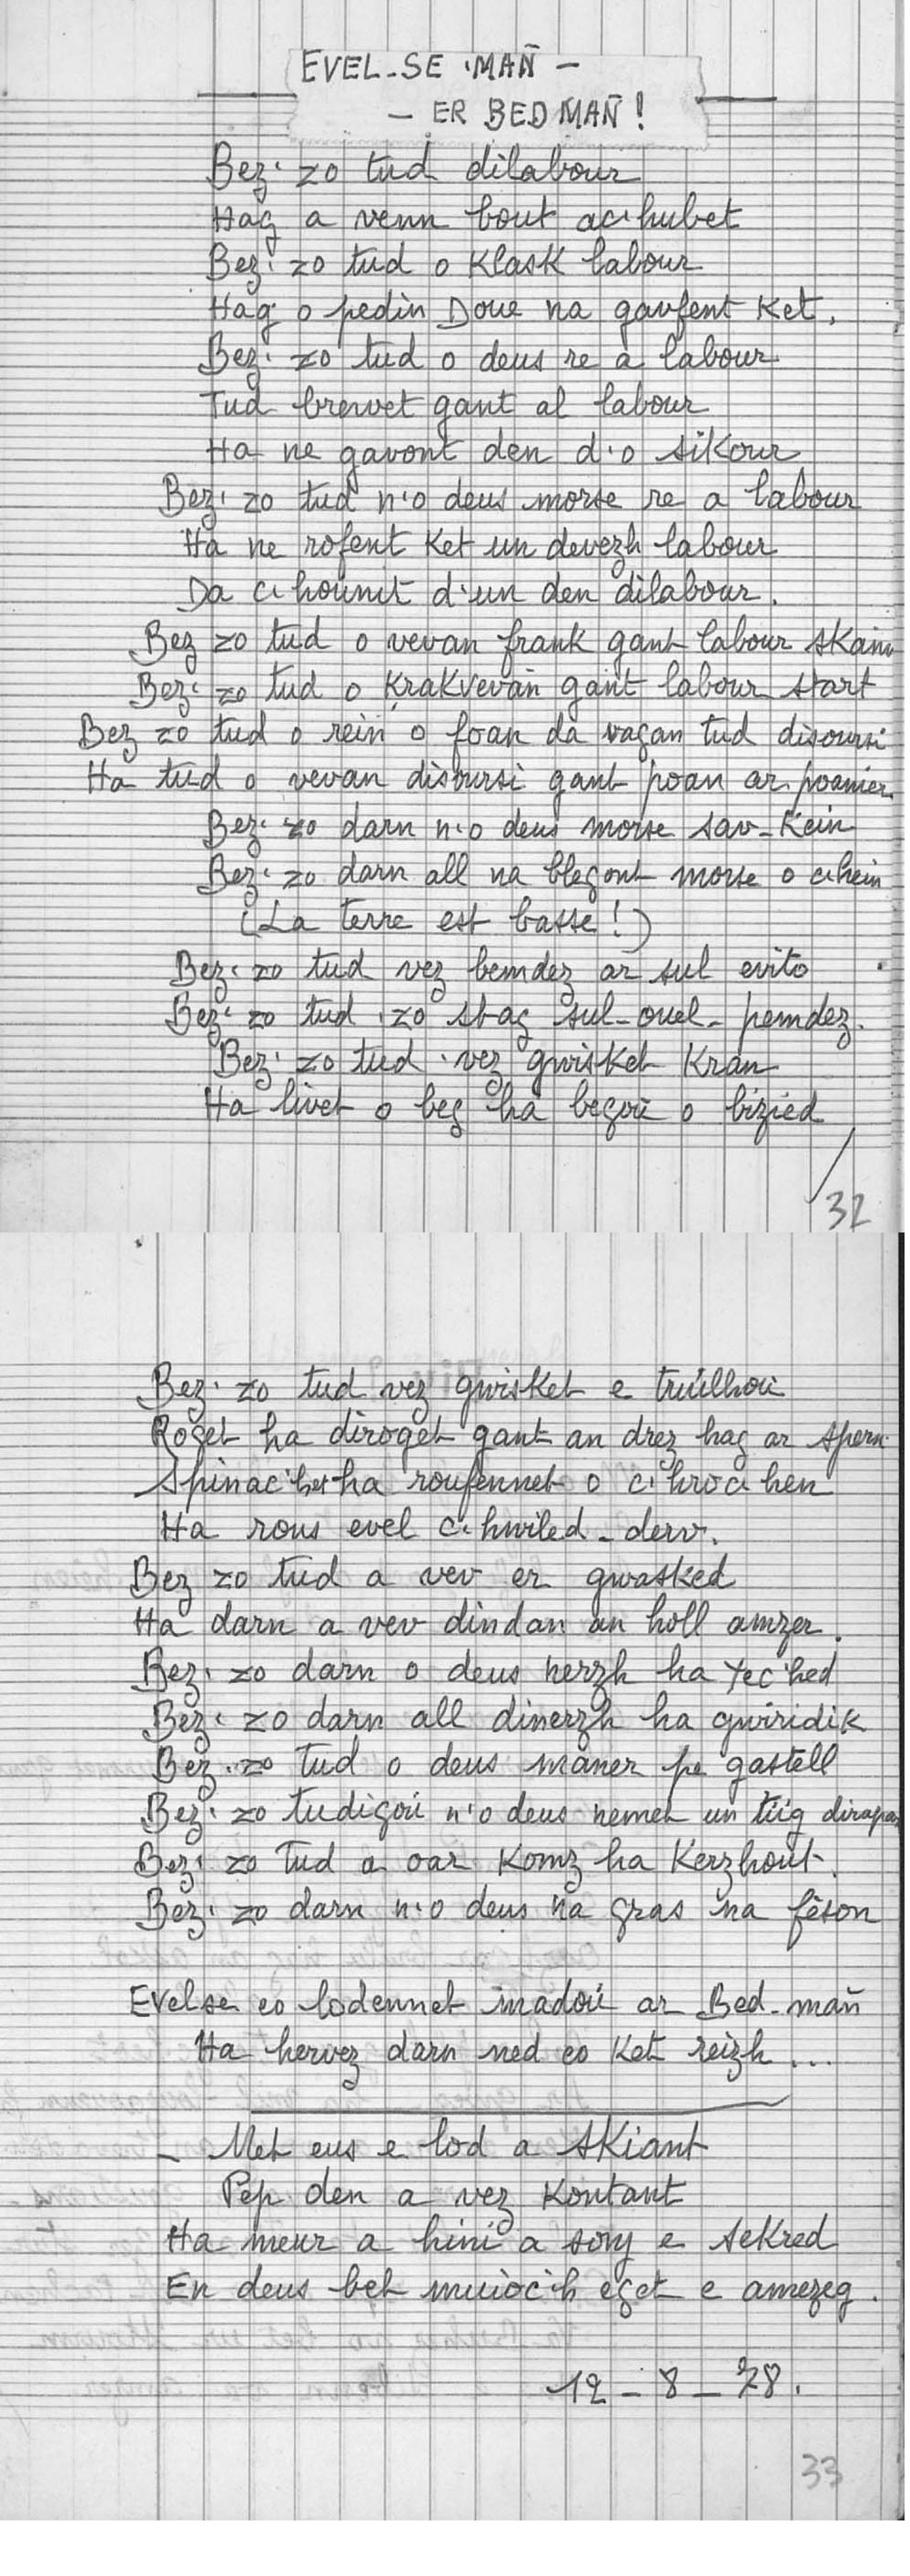 EVEL-SE 'MAÑ -
- ER BED MAÑ !
Bez' zo tud dilabour
Hag a venn bout ac'hubet
Bez' zo tud o klask labour
Hag o pedin Doue na gavfent ket.
Bez' zo tud o deus re a labour
Tud brevet gant al labour
Ha ne gavont den d'o sikour
Bez' zo tud n'o deus morse re a labour
Ha ne rofent ket un devezh labour
Da c'hounit d'un den dilabour.
Bez zo tud o vevan frank gant labour skanv
Bez' zo tud o krakvevañ gant labour start
Bez zo tud o rein o foan da vagan tud disoursi
Ha tud o vevan disoursi gant poan ar poanier.
Bez' zo darn n'o deus morse sav-kein
Bez' zo darn all na blegont morse o c'hein
(La terre est basse !)
Bez' zo tud vez bemdez ar sul evito
Bez' zo tud 'zo stag sul-ouel-pemdez.
Bez' zo tud 'vez gwisket kran
Ha livet o beg ha begoù o bizied
32
Bez' zo tud vez gwisket e truilhoù
Roget ha diroget gant an drez hag ar spern
Spinac'het ha roufennet o c'hroc'hen
Ha rous evel c'hwiled-derv.
Bez zo tud a vev er gwasked
Ha darn a vev dindan an holl amzer.
Bez' zo darn o deus nerzh ha yec'hed
Bez' zo darn all dinerzh ha gwiridik
Bez' zo tud o deus maner pe gastell
Bez' zo tudigoù n'o deus nemet un tiig dirapar
Bez' zo tud a oar komz ha kerzhout.
Bez' zo darn n'o deus na gras na fêson
Evelse eo lodennet madoù ar Bed-mañ
Ha hervez darn ned eo ket reizh ...
- Met eus e lod a skiant
Pep den a vez kontant
Ha meur a hini a sonj e sekred
En deus bet muioc'h eget e amezeg.
12 - 8 - 78.
33